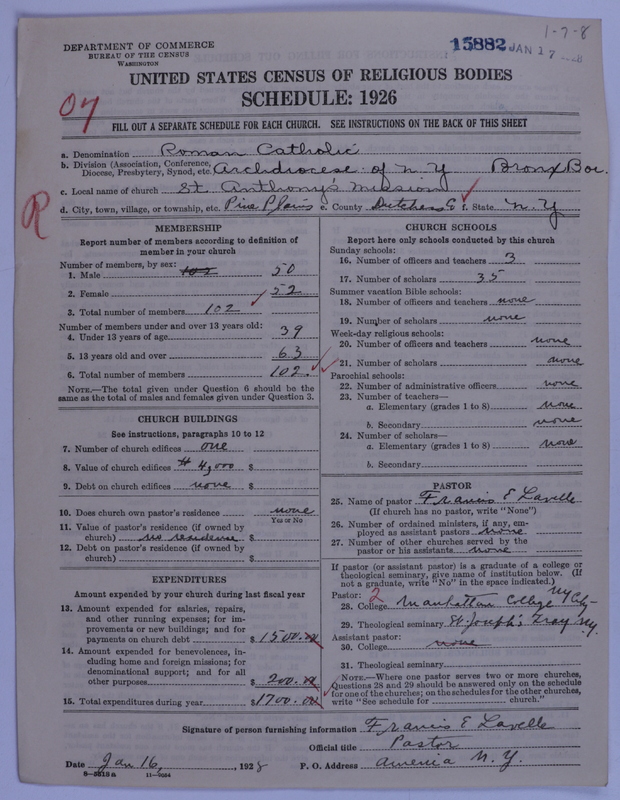 1-7-8
DEPARTMENT OF COMMERCE
BUREAU OF THE CENSUS
WASHINGTON
15882 JAN 17
UNITED STATES CENSUS OF RELIGIOUS BODIES
SCHEDULE: 1926
FILL OUT A SEPARATE SCHEDULE FOR EACH CHURCH. SEE INSTRUCTIONS ON THE BACK OF THIS SHEET
a. Denomination Roman Catholic
b. Division (Association, Conference, Diocese, Presbytery, Synod, etc. Archdiocese of N Y Bronx Bor.
c. Local name of church St. Anthony's Mission
R
d. City, town, village, or township, etc. Pine Plains e. County Dutchess f. State N. Y
MEMBERSHIP
Report number of members according to definition of
member in your church
Number of members, by sex:
1. Male 102 50
2. Female 52
3. Total number of members 102
Number of members under and over 13 years old:
4. Under 13 years of age 39
5. 13 years old and over 63
6. Total number of members 102.
NOTE.—The total given under Question 6 should be
same as the total of males and females given under Question 3.
CHURCH BUILDINGS
See instructions, paragraphs 10 to 12
7. Number of church edifices one
8. Value of church edifices # 4,000 $
9. Debt on church edifices none $
10. Does church own pastor's residence none
Yes or No
11. Value of pastor's residence (if owned by
church) no residence $
12. Debt on pastor's residence (if owned by
church) $
EXPENDITURES
Amount expended by your church during last fiscal year
13. Amount expended for salaries, repairs,
and other running expenses; for im-
provements or new buildings; and for
payments on church debt $1500.00
14. Amount expended for benevolences, in-
cluding home and foreign missions; for
denominational support; and for all
other purposes $200.00
15. Total expenditures during year $1700.00
CHURCH SCHOOLS
Report here only schools conducted by this church
Sunday schools:
16. Number of officers and teachers 3
17. Number of scholars 35
Summer vacation Bible schools:
18. Number of officers and teachers none
19. Number of scholars none
Week-day religious schools:
20. Number of officers and teachers none
21. Number of scholars none
Parochial schools:
22. Number of administrative officers none
23. Number of teachers—
a. Elementary (grades 1 to 8) none
b. Secondary none
24. Number of scholars—
a. Elementary (grades 1 to 8) none
b. Secondary
PASTOR
25. Name of pastor Francis E Lavelle
(If church has no pastor, write "None")
26. Number of ordained ministers, if any, em-
ployed as assistant pastors none
27. Number of other churches served by the
pastor or his assistants none
If pastor (or assistant pastor) is a graduate of a college or
theological seminary, give name of institution below. (If
not a graduate, write "No" in the space indicated.)
Pastor: 2
28. College Manhattan College NY City
29. Theological seminary St Joseph's Troy N.Y.
Assistant pastor:
30. College none
31. Theological seminary
NOTE.—Where one pastor serves two or more churches,
Questions 28 and 29 should be answered only on the schedule
for one of the churches; on the schedules for the other churches,
write "See schedule for church."
Signature of person furnishing information Francis E Lavelle
Official title Pastor
Date Jan 16, 1928 P. O. Address Amenia N. Y.
8-5613 a 11-9054